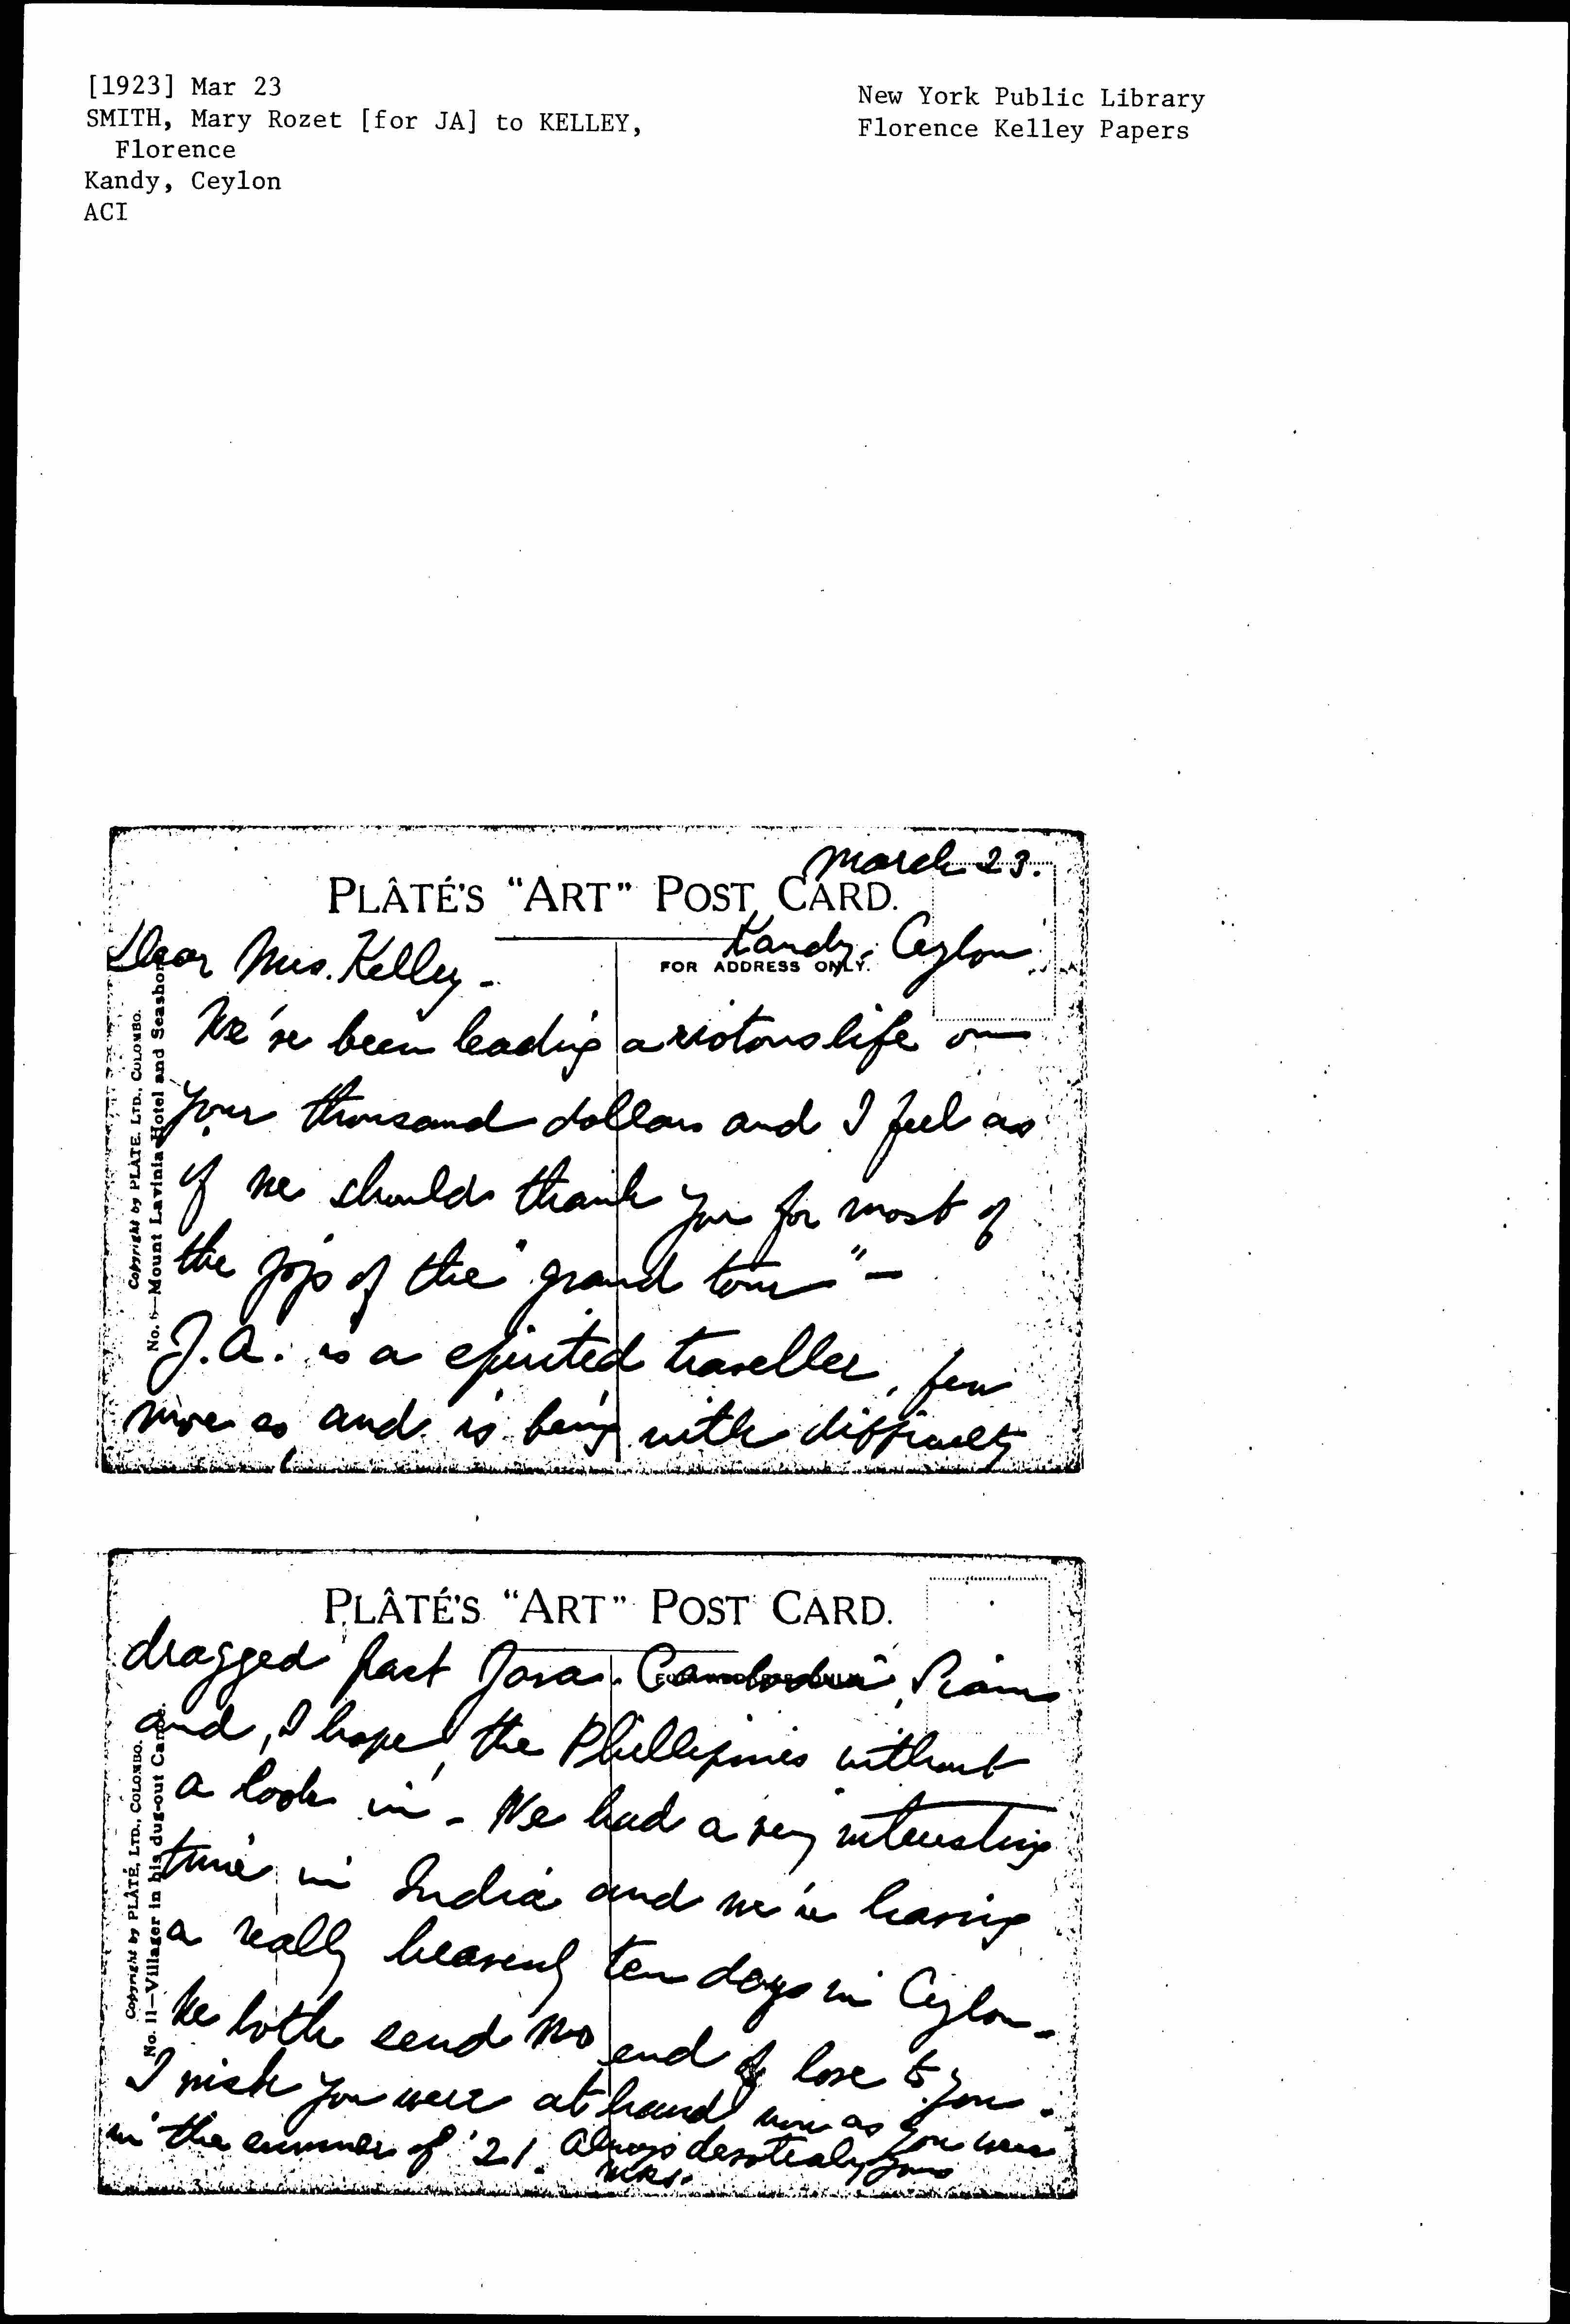 [1923] Mar 23
SMITH, Mary Rozet [for JA] to KELLEY,
Florence
Kandy, Ceylon
ACI
New York Public Library
Florence Kelley Papers
March 23.
PLÂTÉ'S "ART" POST CARD.
Kandy, Ceylon
FOR ADDRESS ONLY.
Dear Mrs. Kelley -
We've been leading a riotous life on
your thousand dollars and I feel as
if we should thank you for most of
the joys of the "grand tour" -
J.A. is a spirited traveller, few
more so and is being with difficulty
Copyright by PLÂTÉ, LTD., COLOMBO.
No. 6—Mount Lavinia Hotel and Seashore
PLÂTÉ'S "ART" POST CARD.
dragged past Java, Cambodia, Siam
and, I hope, the Phillipines without
a look in - We had a very interesting
time in India and we're having
a really heavenly ten days in Ceylon -
We both send no end of love to you.
I wish you were at hand now as you were
in the summer of '21. Always devotedly yours
MRS.
Copyright by PLÂTÉ, LTD., COLOMBO.
No. 11—Villager in his dug-out Canoe.